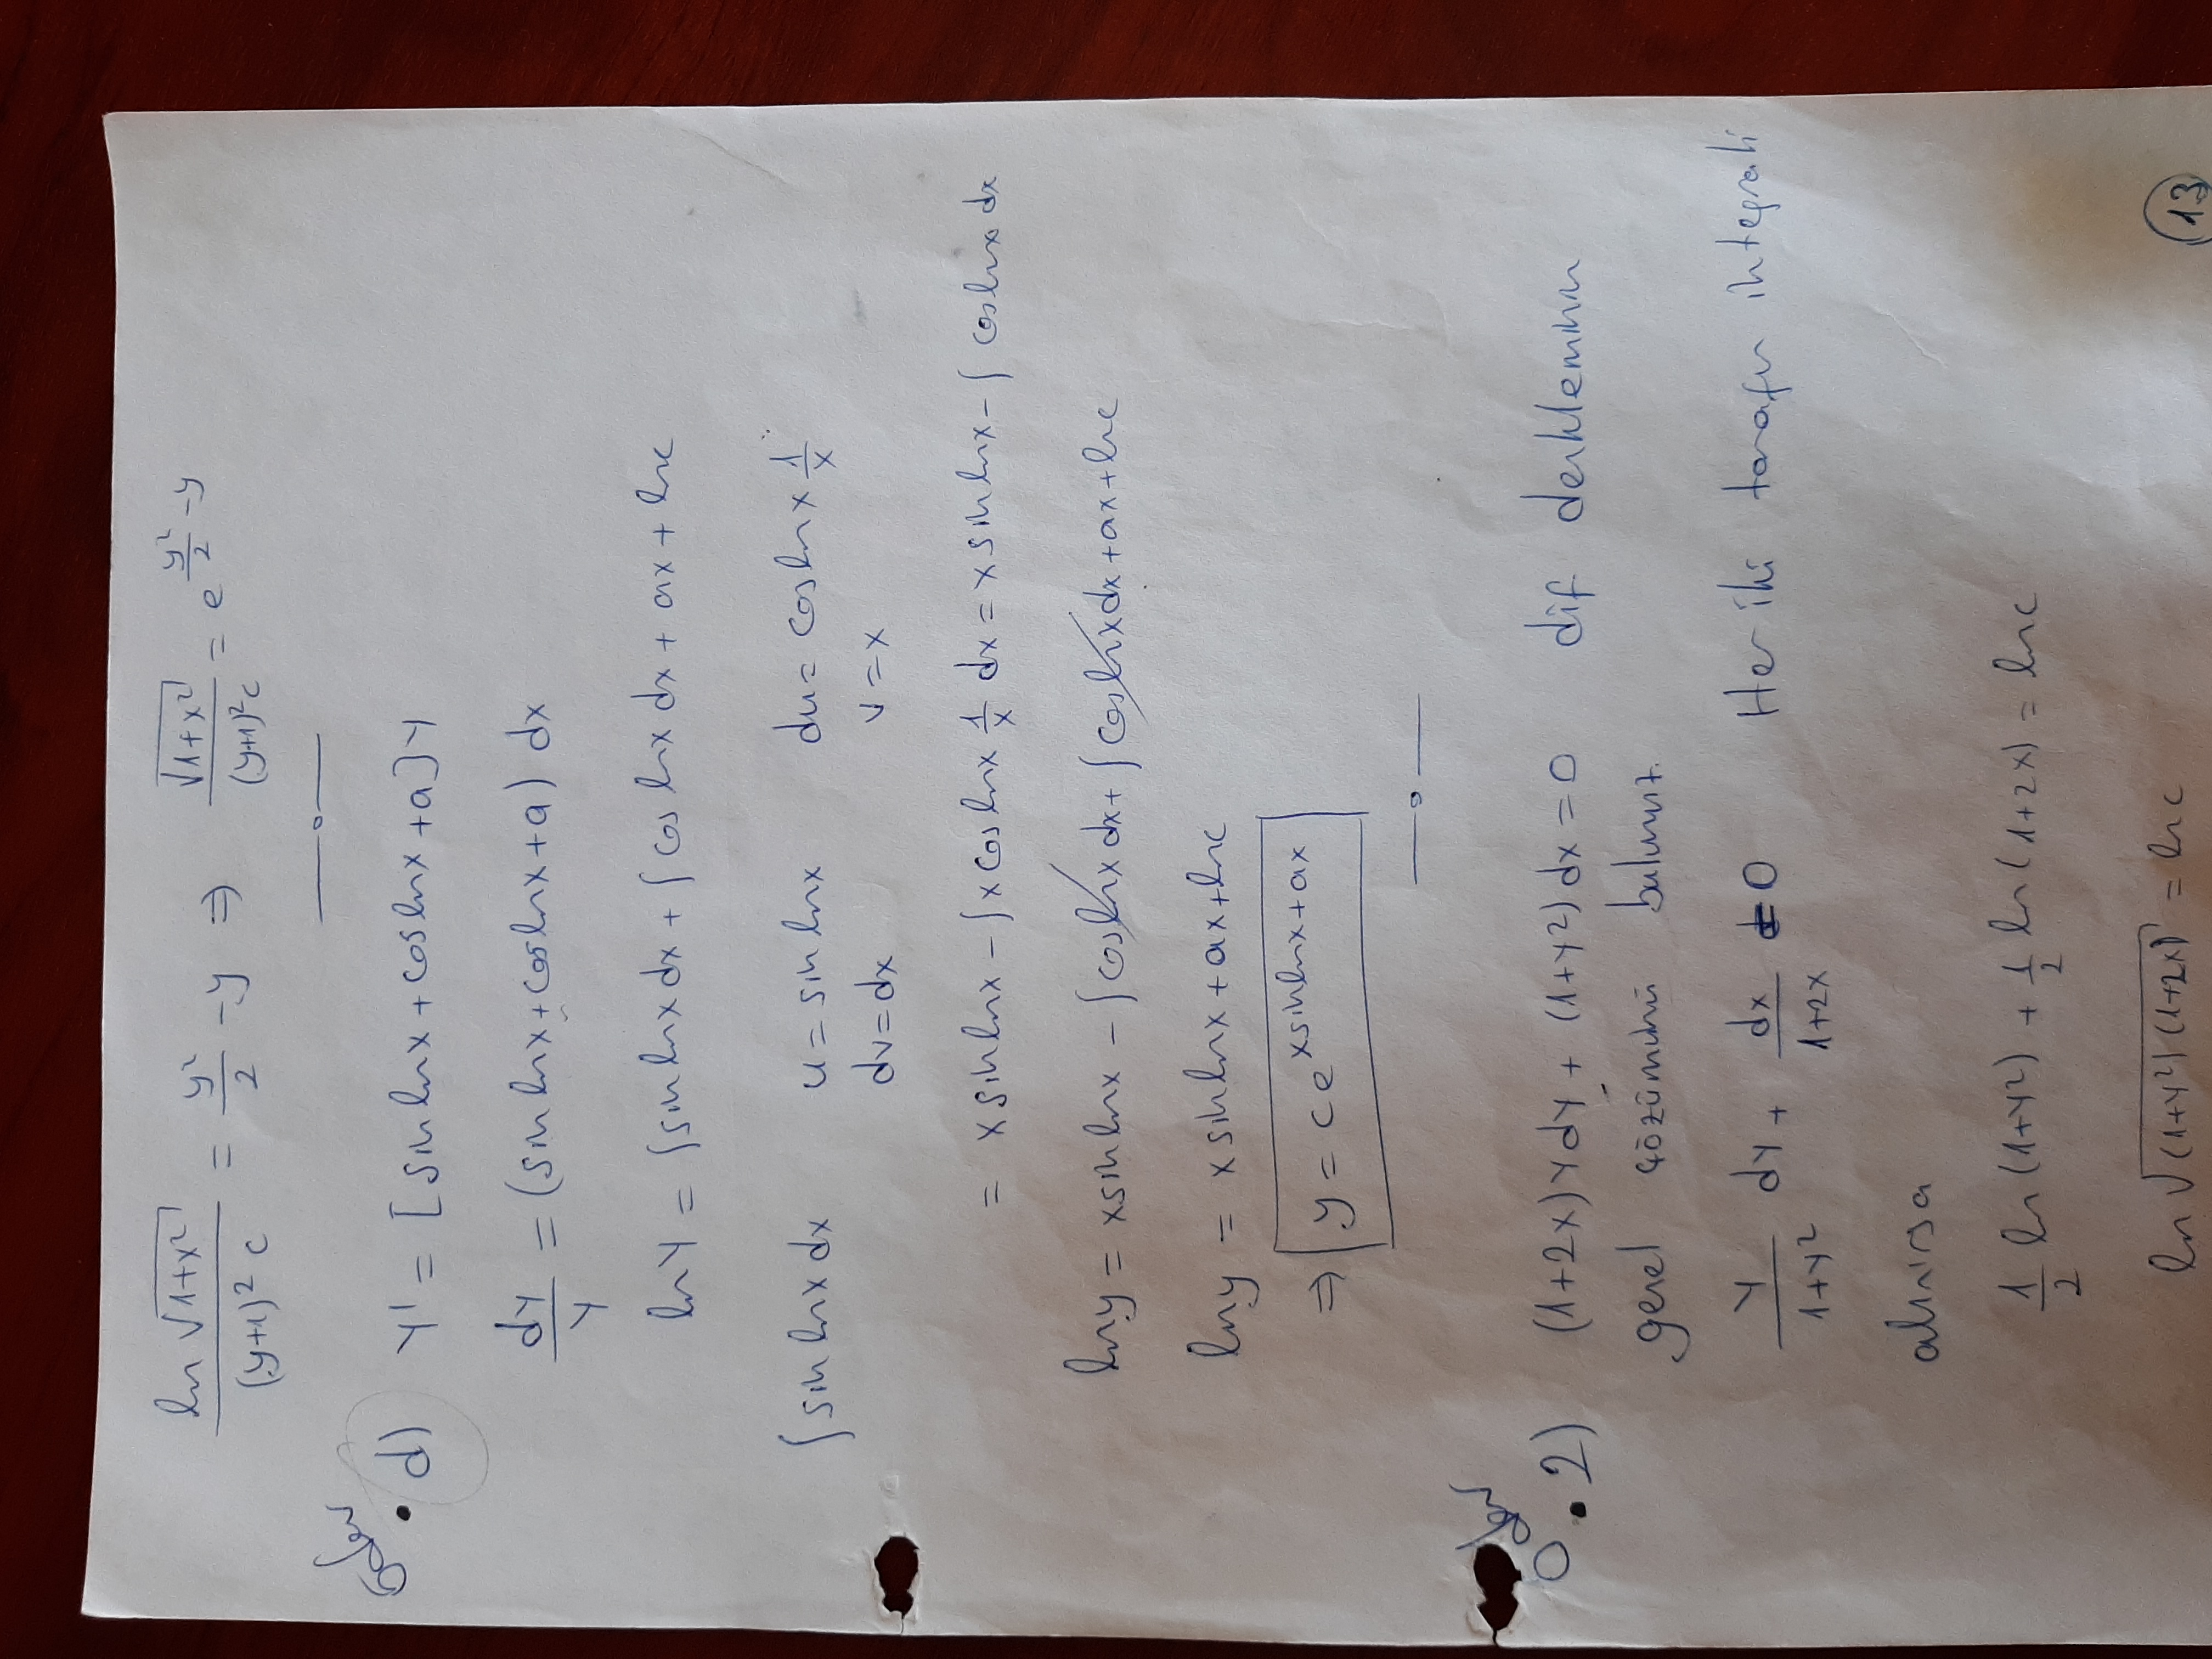 ln √(1+x²) / (y+1)² c = y²/2 - y ⇒ √(1+x²) / (y+1)² c = e^(y²/2 - y)
Ödev
• d) Y' = [sin lnx + cos lnx + a] Y
dY/Y = (sin lnx + cos lnx + a) dx
ln Y = ∫ sin lnx dx + ∫ cos lnx dx + ax + lnc
∫ sin lnx dx u = sin lnx du = cos lnx 1/x
dv = dx v = x
= x sin lnx - ∫ x cos lnx 1/x dx = x sin lnx - ∫ cos lnx dx
lny = x sin lnx - ∫ cos lnx dx + ∫ cos lnx dx + ax + lnc
lny = x sin lnx + ax + lnc
⇒ y = c e^(x sin lnx + ax)
Ödev
• 2) (1+2x) Y dY + (1+Y²) dx = 0 dif denkleminin
genel çözümünü bulunuz.
Y/(1+Y²) dY + dx/(1+2x) = 0 Her iki tarafın integrali
alınırsa
1/2 ln (1+Y²) + 1/2 ln (1+2x) = lnc
ln √((1+Y²)(1+2x)) = lnc
13